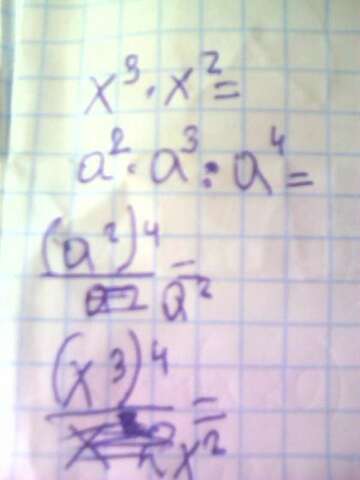 x³ · x² =
a² · a³ : a⁴ =
(a²)⁴ / a² =
(x³)⁴ / x² =